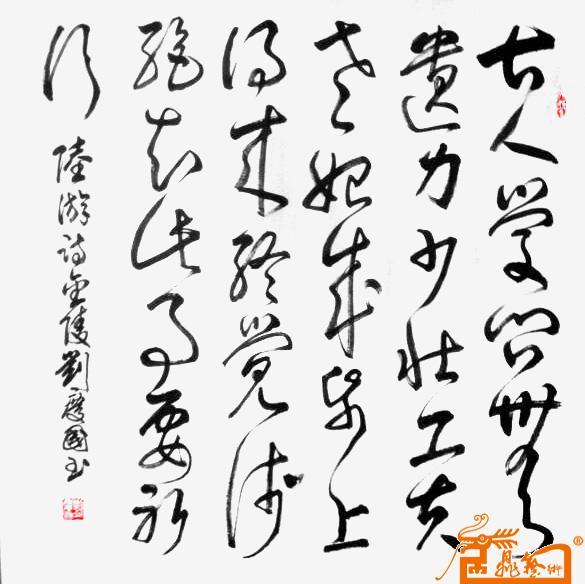 古人学问無
遗力少壮工夫
老始成纸上
得来终觉浅
绝知此事要躬
行
陸游诗金陵劉慶國书